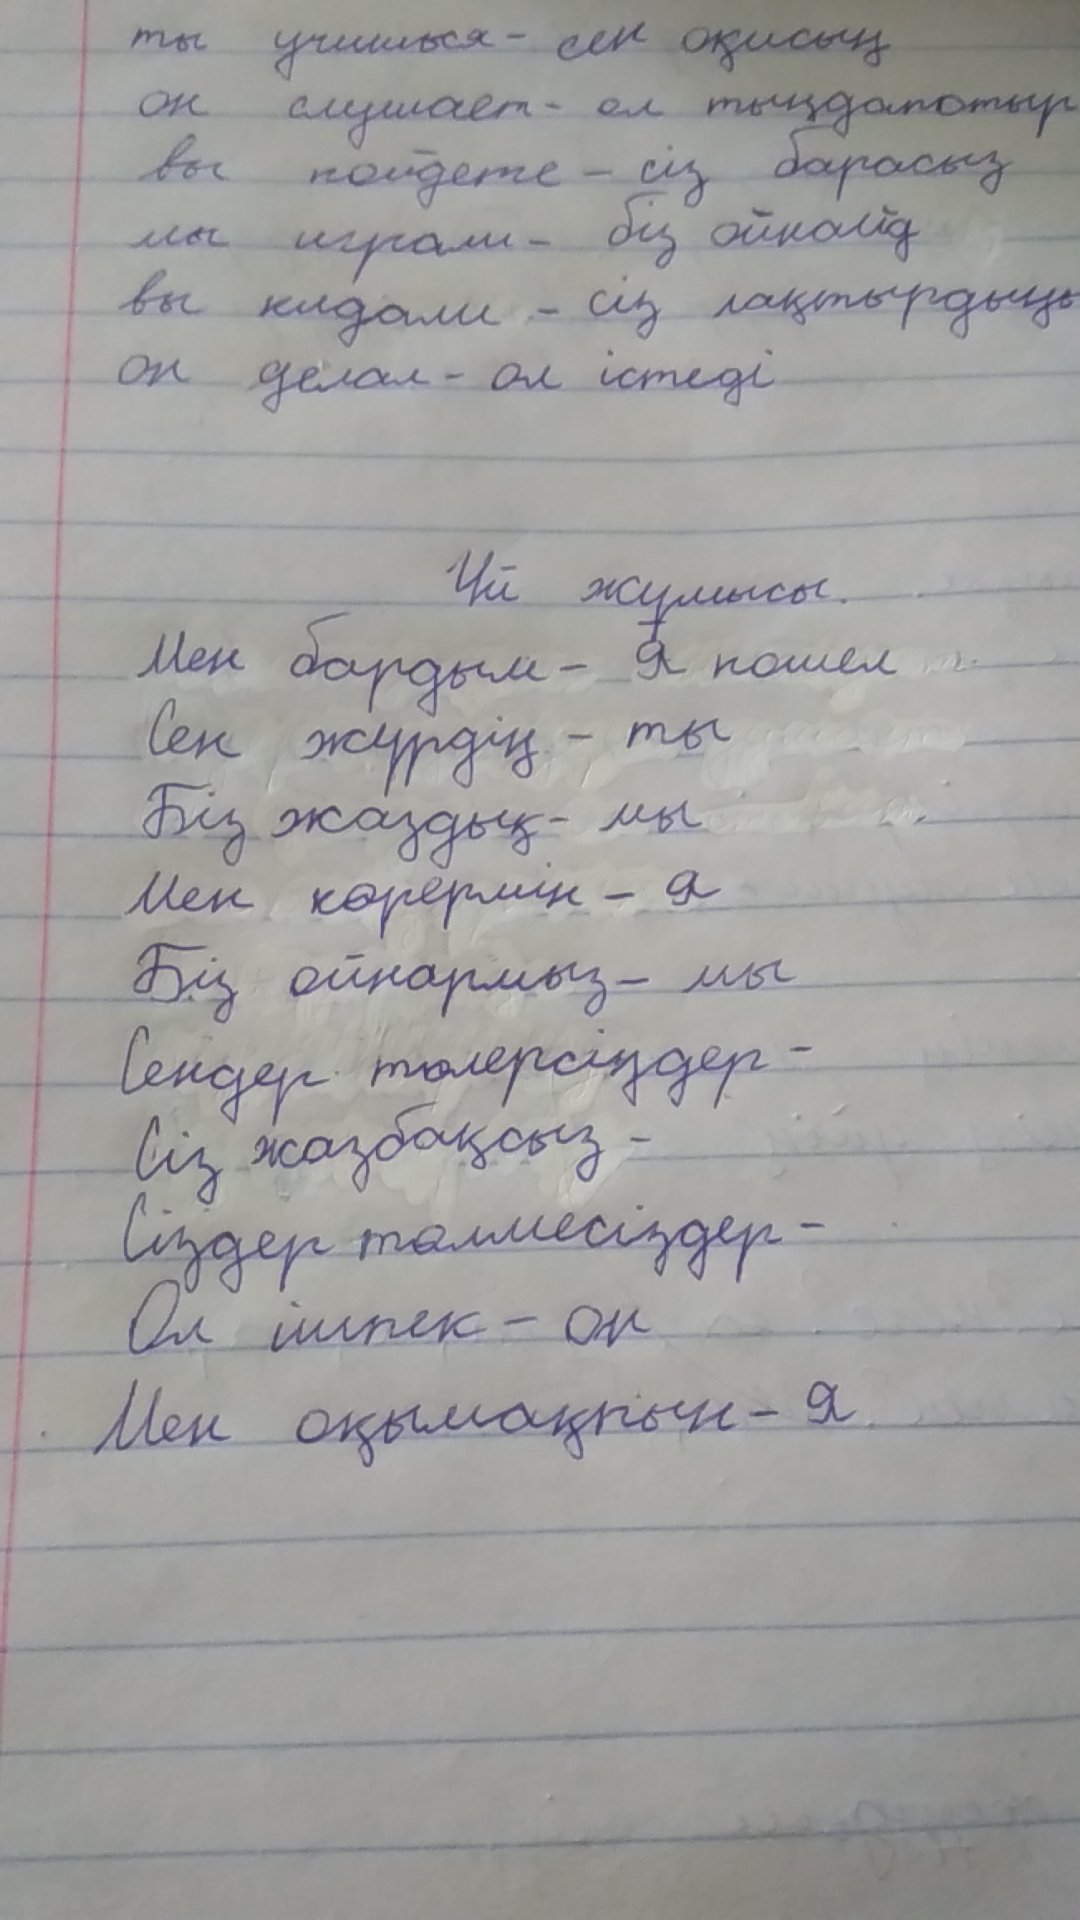 ты учишься - сен оқисың
он слушает - ол тыңдапотыр
вы пойдете - сіз барасыз
мы играли - біз ойнайд
вы кидали - сіз лақтырдыңы
он делал - ол істеді
Үй жұмысы.
Мен бардым - Я пошел
Сен жүрдің - ты
Біз жаздық - мы
Мен көрермін - Я
Біз ойнармыз - мы
Сендер төлерсіңдер -
Сіз жазбақсыз -
Сіздер төлмесіздер -
Ол ішпек - он
Мен оқымақпын - Я